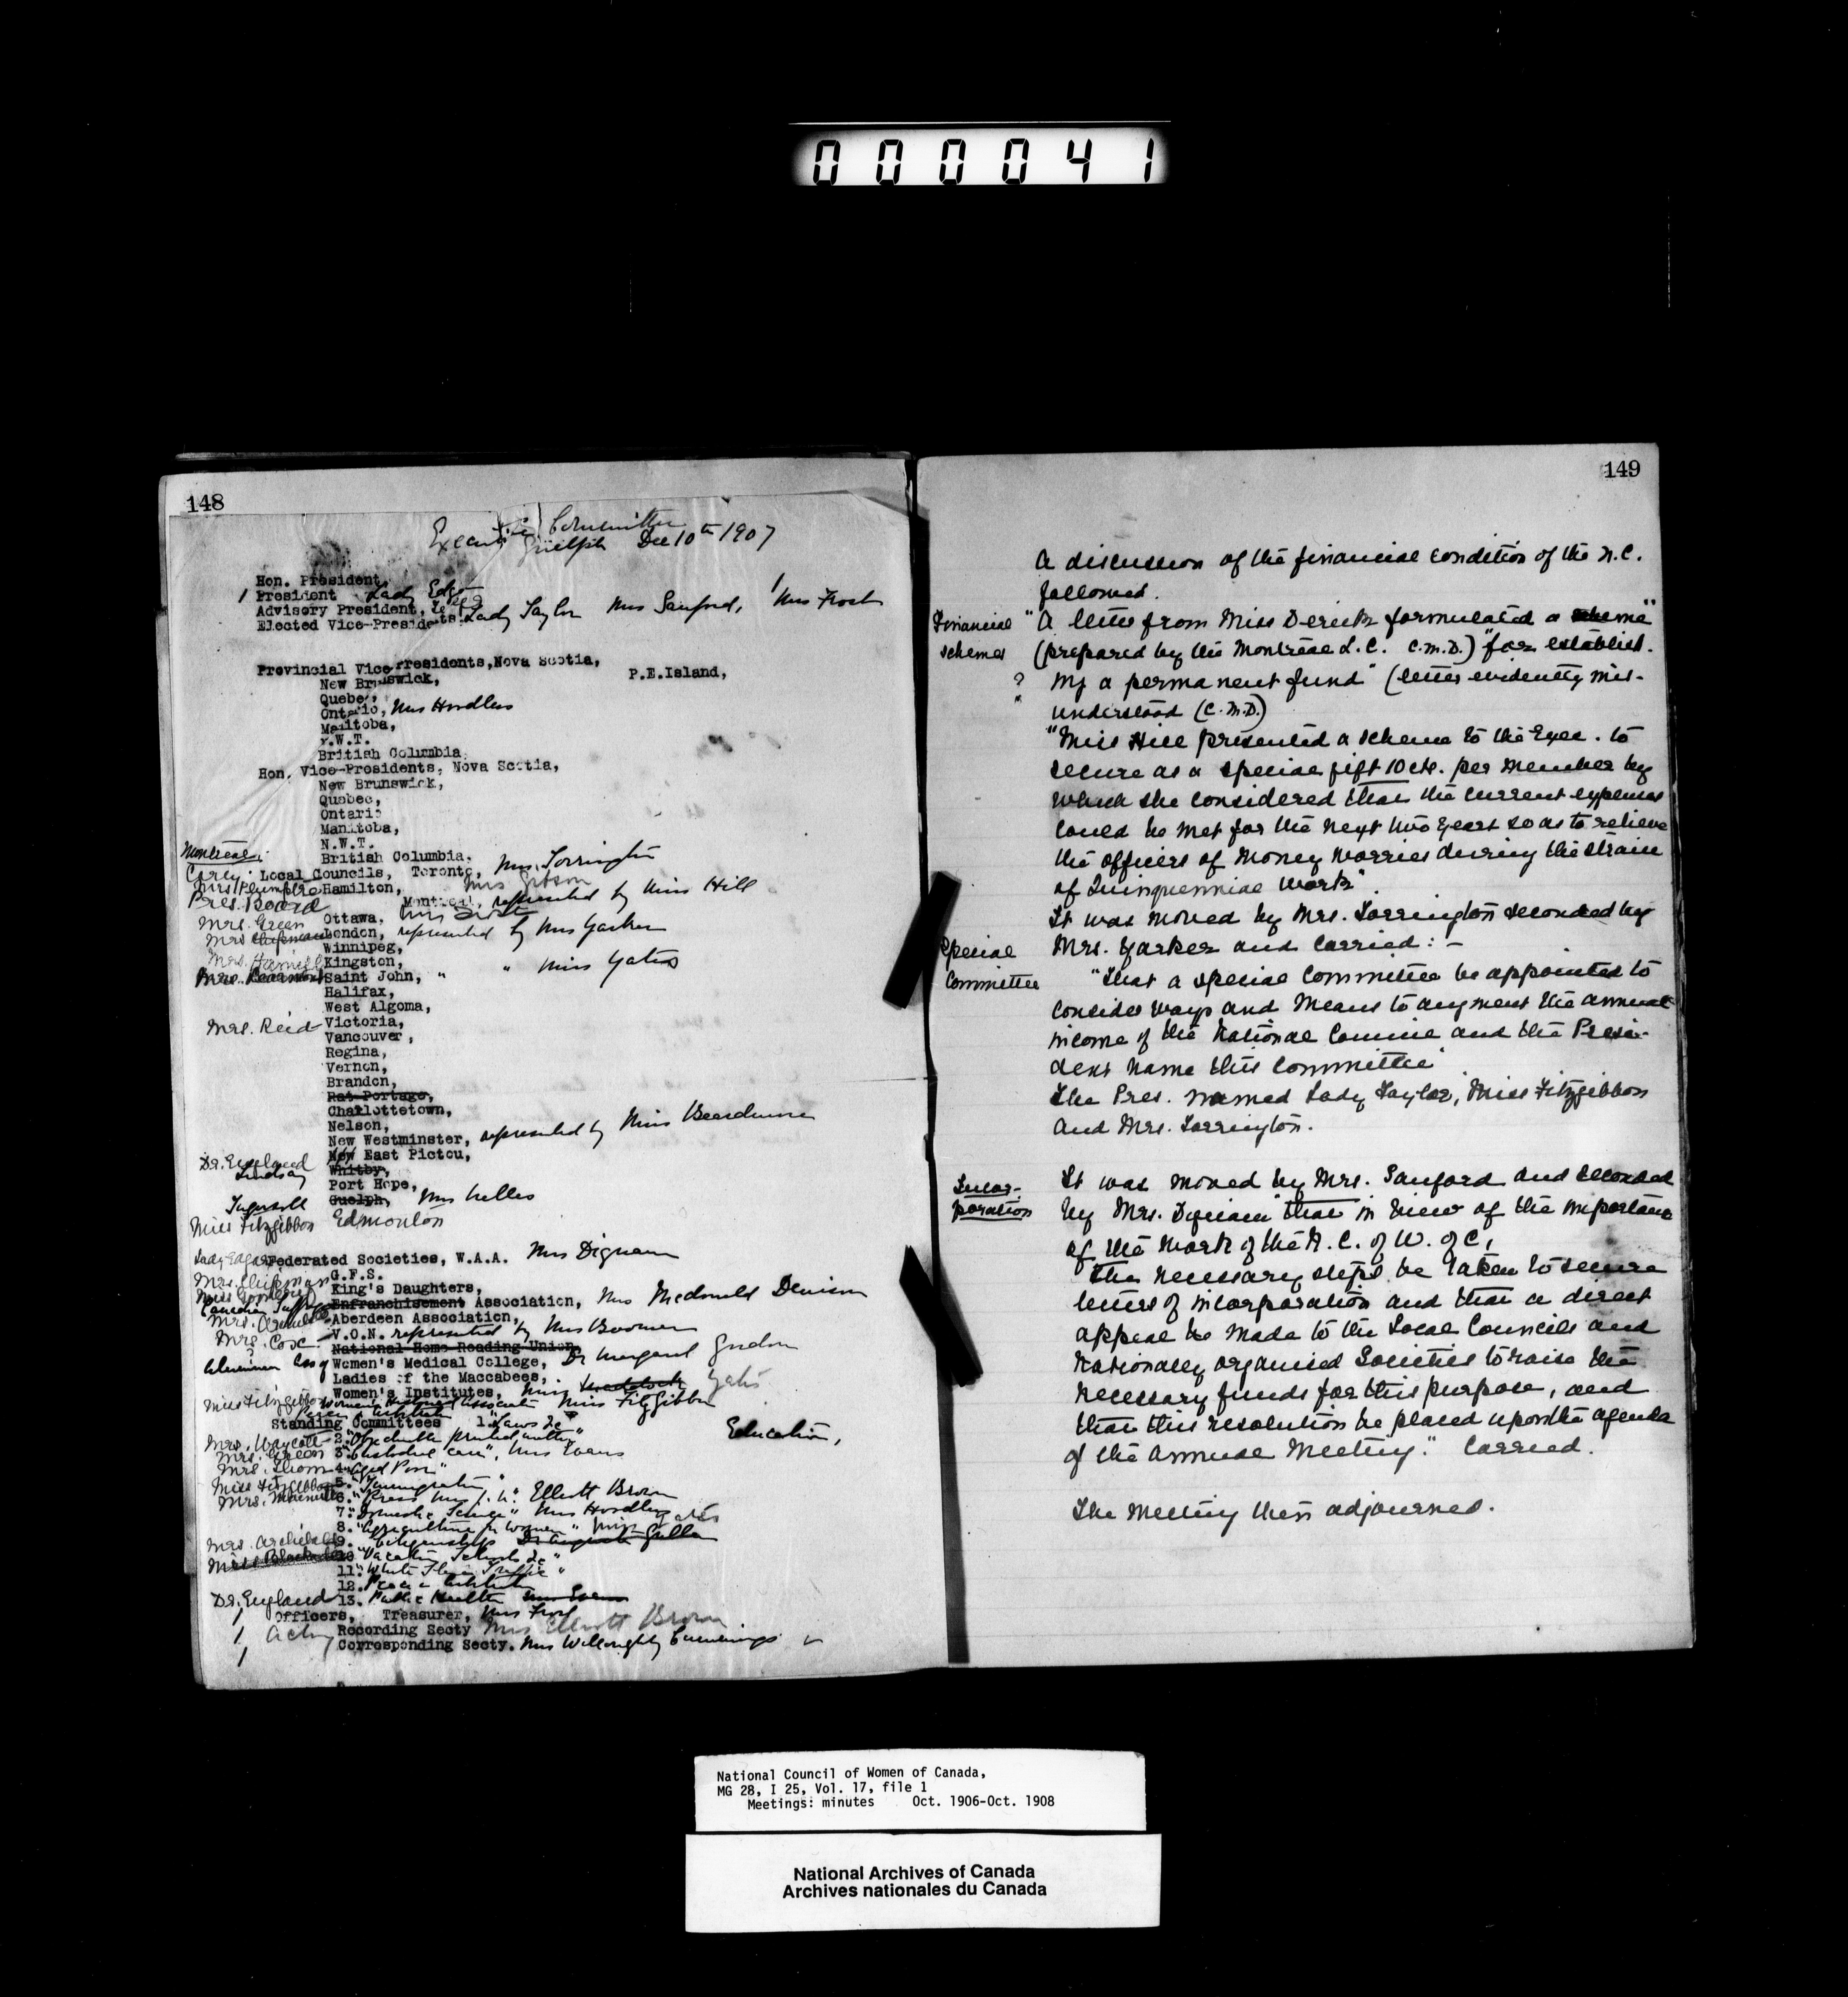 000041
148
Executive Committee
Guelph Dec 10th 1907
Hon. President,
1 President Lady Edgar
Advisory President,
Elected Vice-Presidents. Lady Taylor Mrs Sanford, 1 Mrs Frost
Provincial Vice-Presidents, Nova Scotia,
P.E.Island,
New Brunswick,
Quebec,
Ontario, Mrs Hoodless
Manitoba,
N.W.T.
British Columbia
Hon. Vice-Presidents, Nova Scotia,
New Brunswick,
Quebec,
Ontario
Manitoba,
N.W.T.
Montreal:
British Columbia,
Local Councils, Toronto, Mrs. Torrington
Mrs Plumptre Hamilton, Mrs Gibson
Pres. Board Montreal, represented by Miss Hill
Mrs. Green Ottawa,
Mrs London, represented by Mrs Yarker
Winnipeg,
Kingston,
Saint John, " " Miss Yates
Halifax,
West Algoma,
Mrs. Reid Victoria,
Vancouver,
Regina,
Vernon,
Brandon,
Rat Portage,
Charlottetown,
Nelson,
New Westminster, represented by Miss
East Pictou,
Dr. England
Lindsay Whitby,
Port Hope,
Ingersoll Guelph, Mrs
Miss Fitzgibbon Edmonton
Lady Edgar Federated Societies, W.A.A. Mrs Dignam
G.F.S.
King's Daughters,
Enfranchisement Association, Mrs Mcdonald Denison
Aberdeen Association,
Mrs. Cox V.O.N. represented by Mrs Boomer
National Home Reading Union,
Women's Medical College, Dr Margaret Gordon
Ladies of the Maccabees,
Women's Institutes, Miss Yates
Miss Fitzgibbon Women's Historical Associate Miss FitzGibbon
Standing Committees 1. "Laws &c"
Education,
Mrs. Waycott 2. "Objectionable printed matter"
Mrs. Green 3. "Custodial care", Mrs Evans
Mrs. Thom 4. "Aged Poor"
Miss FitzGibbon 5. "Immigration"
6. "Press Mrs J. L. Elliott Brown
7. "Domestic Science" Mrs Hoodless
8. "Agriculture for women" Miss Yates
Mrs. Archibald 9. "Citizenship Dr Augusta Gullen
10 "Vacation Schools &c"
11. "White Slave Traffic"
12. Peace & Arbitration
Dr. England 13. Public Health Mrs Evans
1 Officers, Treasurer, Mrs Frost
1 Acting Recording Secty Mrs Elliott Brown
1 Corresponding Secty. Mrs Willoughby Cummings
149
A discussion of the financial condition of the N.C.
followed.
Financial "A letter from Miss Derick formulated a scheme"
schemes (prepared by the Montreal L.C. C.M.D.) "for establish-
? ing a permanent fund" (letter evidently mis-
understood (C.M.D.)
"Miss Hill presented a scheme to the Exec. to
secure as a special gift 10 cts. per member by
which she considered that the current expenses
could be met for the next two years so as to relieve
the officers of money worries during the strain
of Quinquennial work".
It was moved by Mrs. Torrington seconded by
Special Mrs. Yarker and carried: –
Committee "That a special Committee be appointed to
consider ways and means to augment the annual
income of the National Council and the Presi-
dent name this committee"
The Pres. named Lady Taylor, Miss Fitzgibbon
and Mrs. Torrington.
Incor-
poration
It was moved by Mrs. Sanford and seconded
by Mrs. Dignam "that in view of the importance
of the work of the N.C. of W. of C,
the necessary steps be taken to secure
letters of incorporation and that a direct
appeal be made to the Local Councils and
Nationally organised Societies to raise the
necessary funds for this purpose, and
that this resolution be placed upon the agenda
of the Annual Meeting." Carried.
The Meeting then adjourned.
National Council of Women of Canada,
MG 28, I 25, Vol. 17, file 1
Meetings: minutes Oct. 1906-Oct. 1908
National Archives of Canada
Archives nationales du Canada